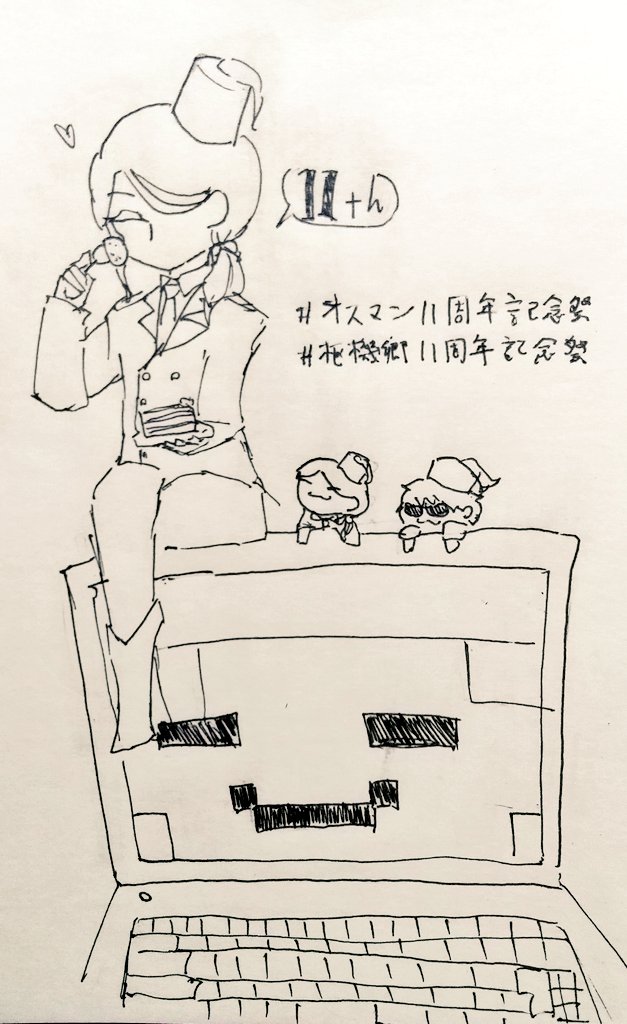 11th
#オスマン11周年記念祭
#枢機卿11周年記念祭